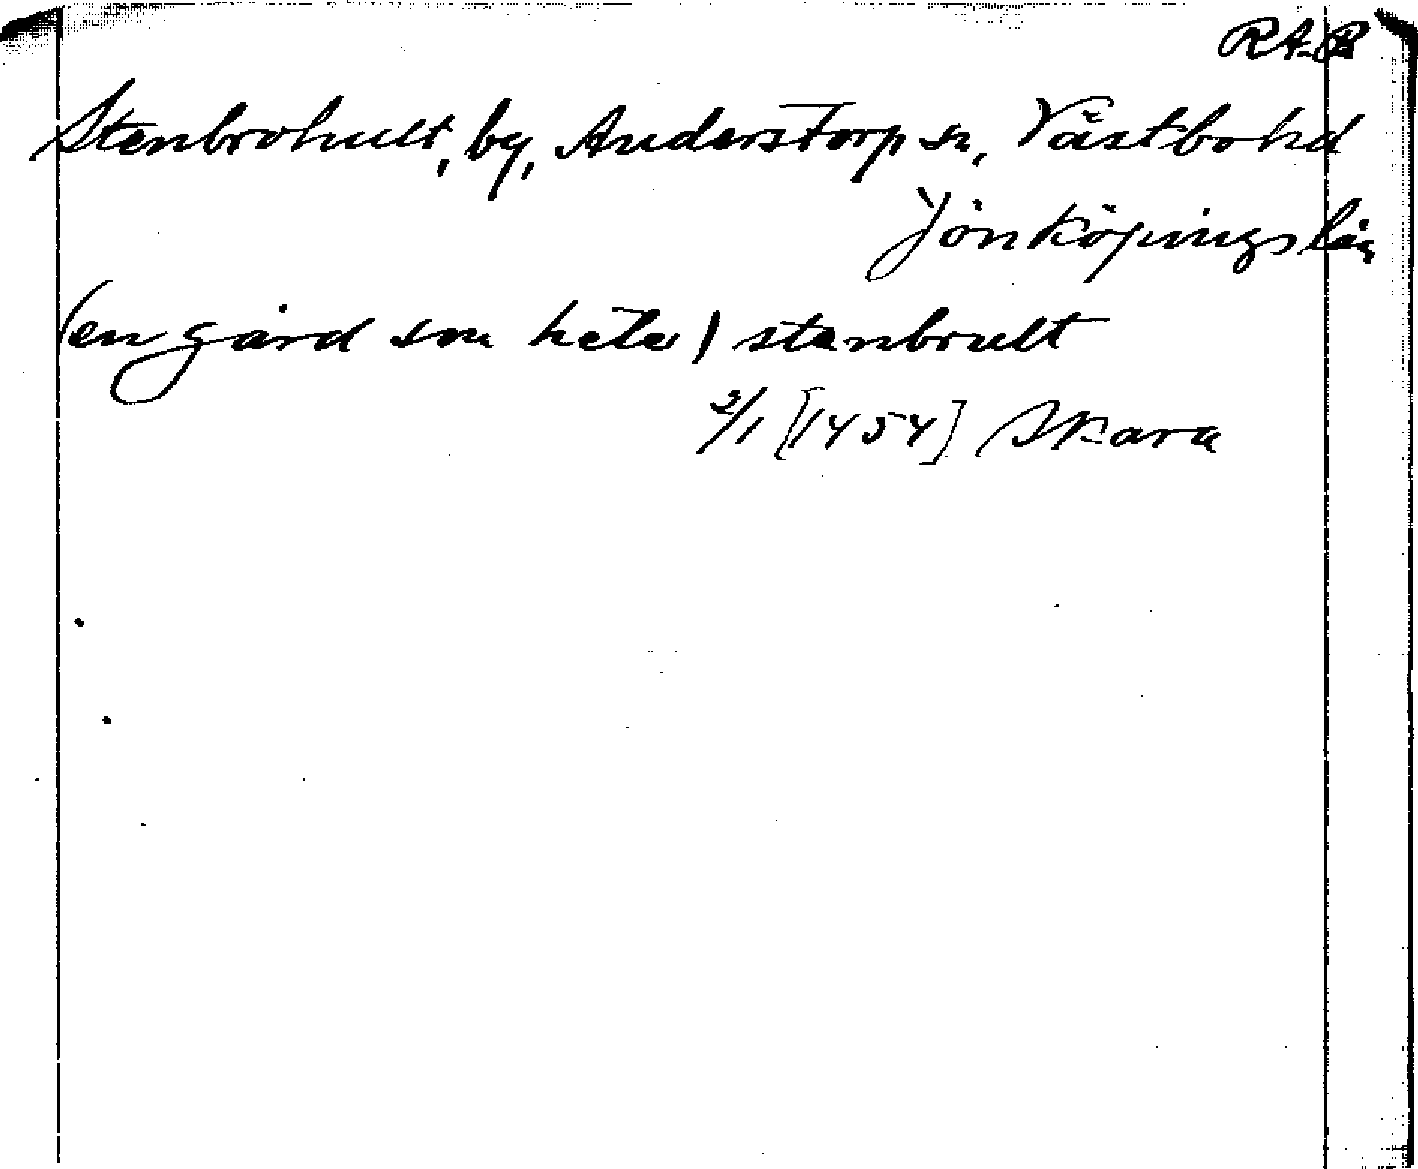 RA-P
Stenbrohult, by, Anderstorp sn, Västbo hd
Jönköpings län
(en gård som heter) stenbrult
2/1 [1454] Skara